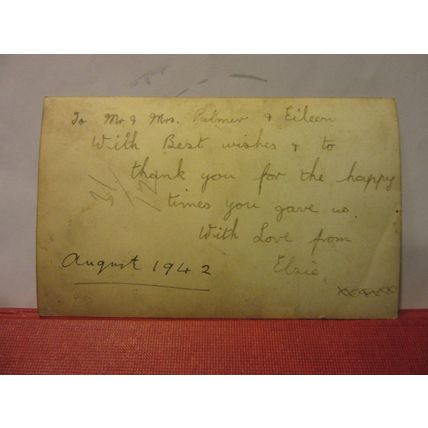 To Mr & Mrs. Palmer & Eileen
With Best wishes & to
thank you for the happy
times you gave us.
With Love from
Elsie.
August 1942
xxxxxxx